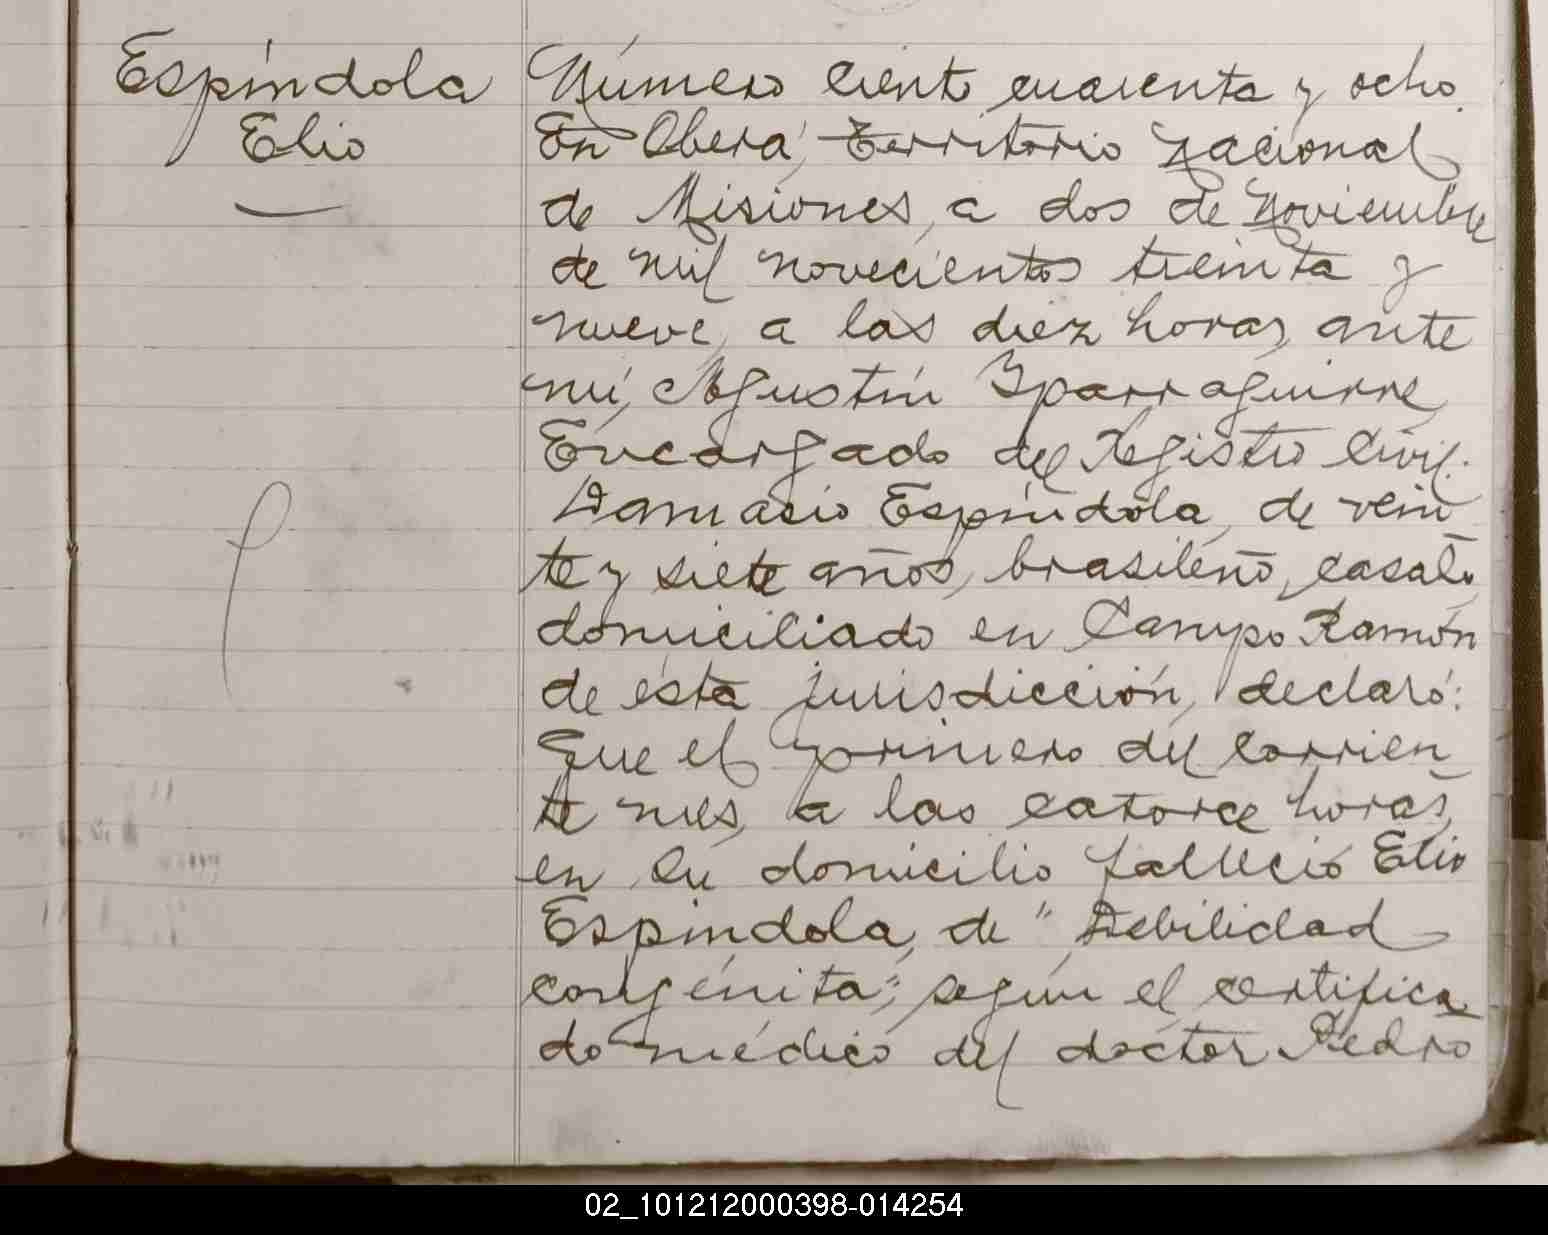 Espíndola
Elio
Número ciento cuarenta y ocho.
En Oberá, Territorio Nacional
de Misiones, a dos de Noviembre
de mil novecientos treinta y
nueve, a las diez horas, ante
mí, Agustín Yparraguirre,
Encargado del Registro Civil.
Damasio Espíndola, de vein
te y siete años, brasileño, casado,
domiciliado en Campo Ramón
de ésta jurisdicción, declaró:
Que el primero del corrien
te mes, a las catorce horas,
en su domicilio falleció Elio
Espíndola, de "Debilidad
congénita", según el certifica
do médico del doctor Pedro
02_101212000398-014254